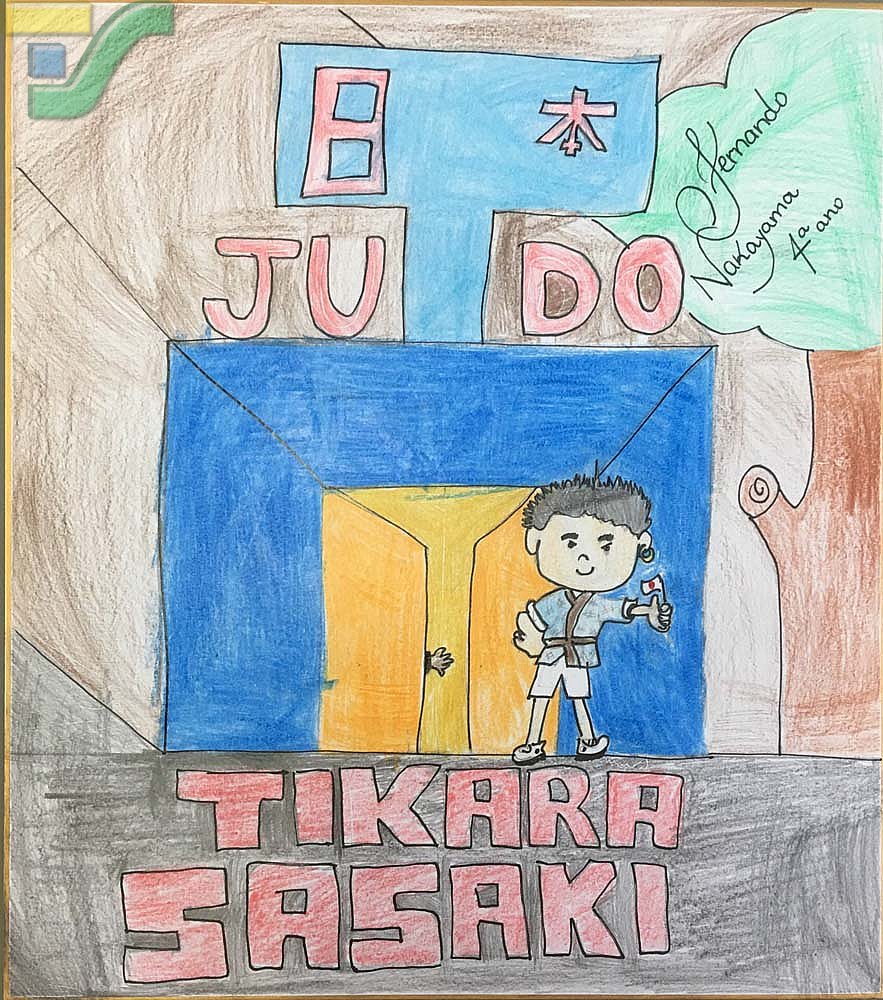 日本
JUDO
Fernando
Nakayama
4ª ano
TIKARA
SASAKI